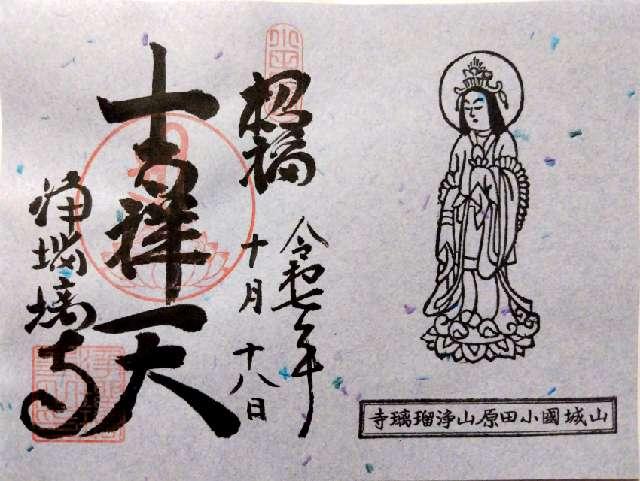 山城國小田原山浄瑠璃寺
令和七年
十月十八日
招福
吉祥天
浄瑠璃寺